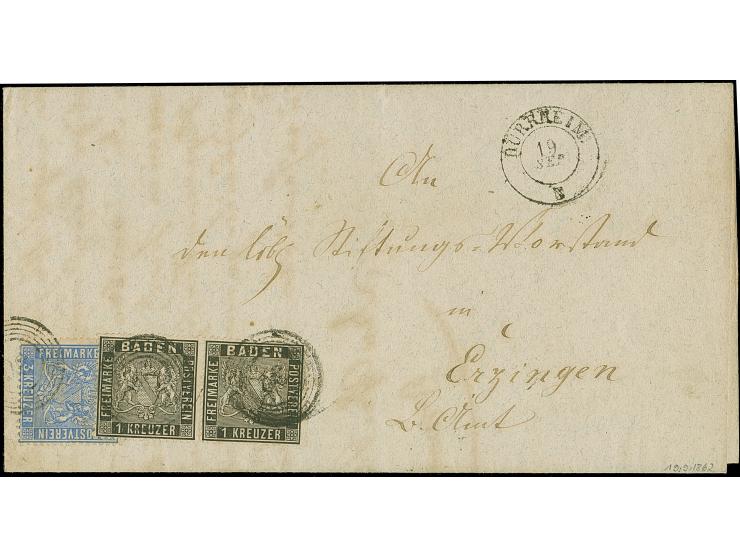 DÜRRHEIM
19
SEP
An
den löbl Stiftungs-Vorstand
in
Erzingen
B. Amt
FREIMARKE
3 KREUZER
POSTVEREIN
BADEN
FREIMARKE
POSTVEREIN
1 KREUZER
BADEN
FREIMARKE
POSTVEREIN
1 KREUZER
19.9.1862